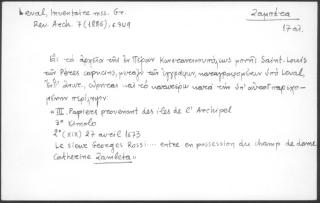 Leval, Inventaire mss. Gr.
Rev. Arch. 7 (1886), σ. 349
Ζαμπέτα
17 αἰ.
Εἰς τὸ ἀρχεῖο τῆς ἐν Πέραν Κωνσταντινουπόλεως μονῆς Saint-Louis
τῶν Pères capucins, μεταξὺ τῶν ἐγγράφων, καταγραφομένων ὑπὸ Leval,
καὶ τὸ κατωτέρω κατὰ τὴν ὑπ' αὐτοῦ παρεχο-
μένην περίληψιν:
« III. Papiers provenant des îles de l'Archipel
3º Kimolo
2º (XIX) 27 avril 1673
Le sieur Georges Rossi.... entre en possession du champ de dame
Catherine Zambeta »